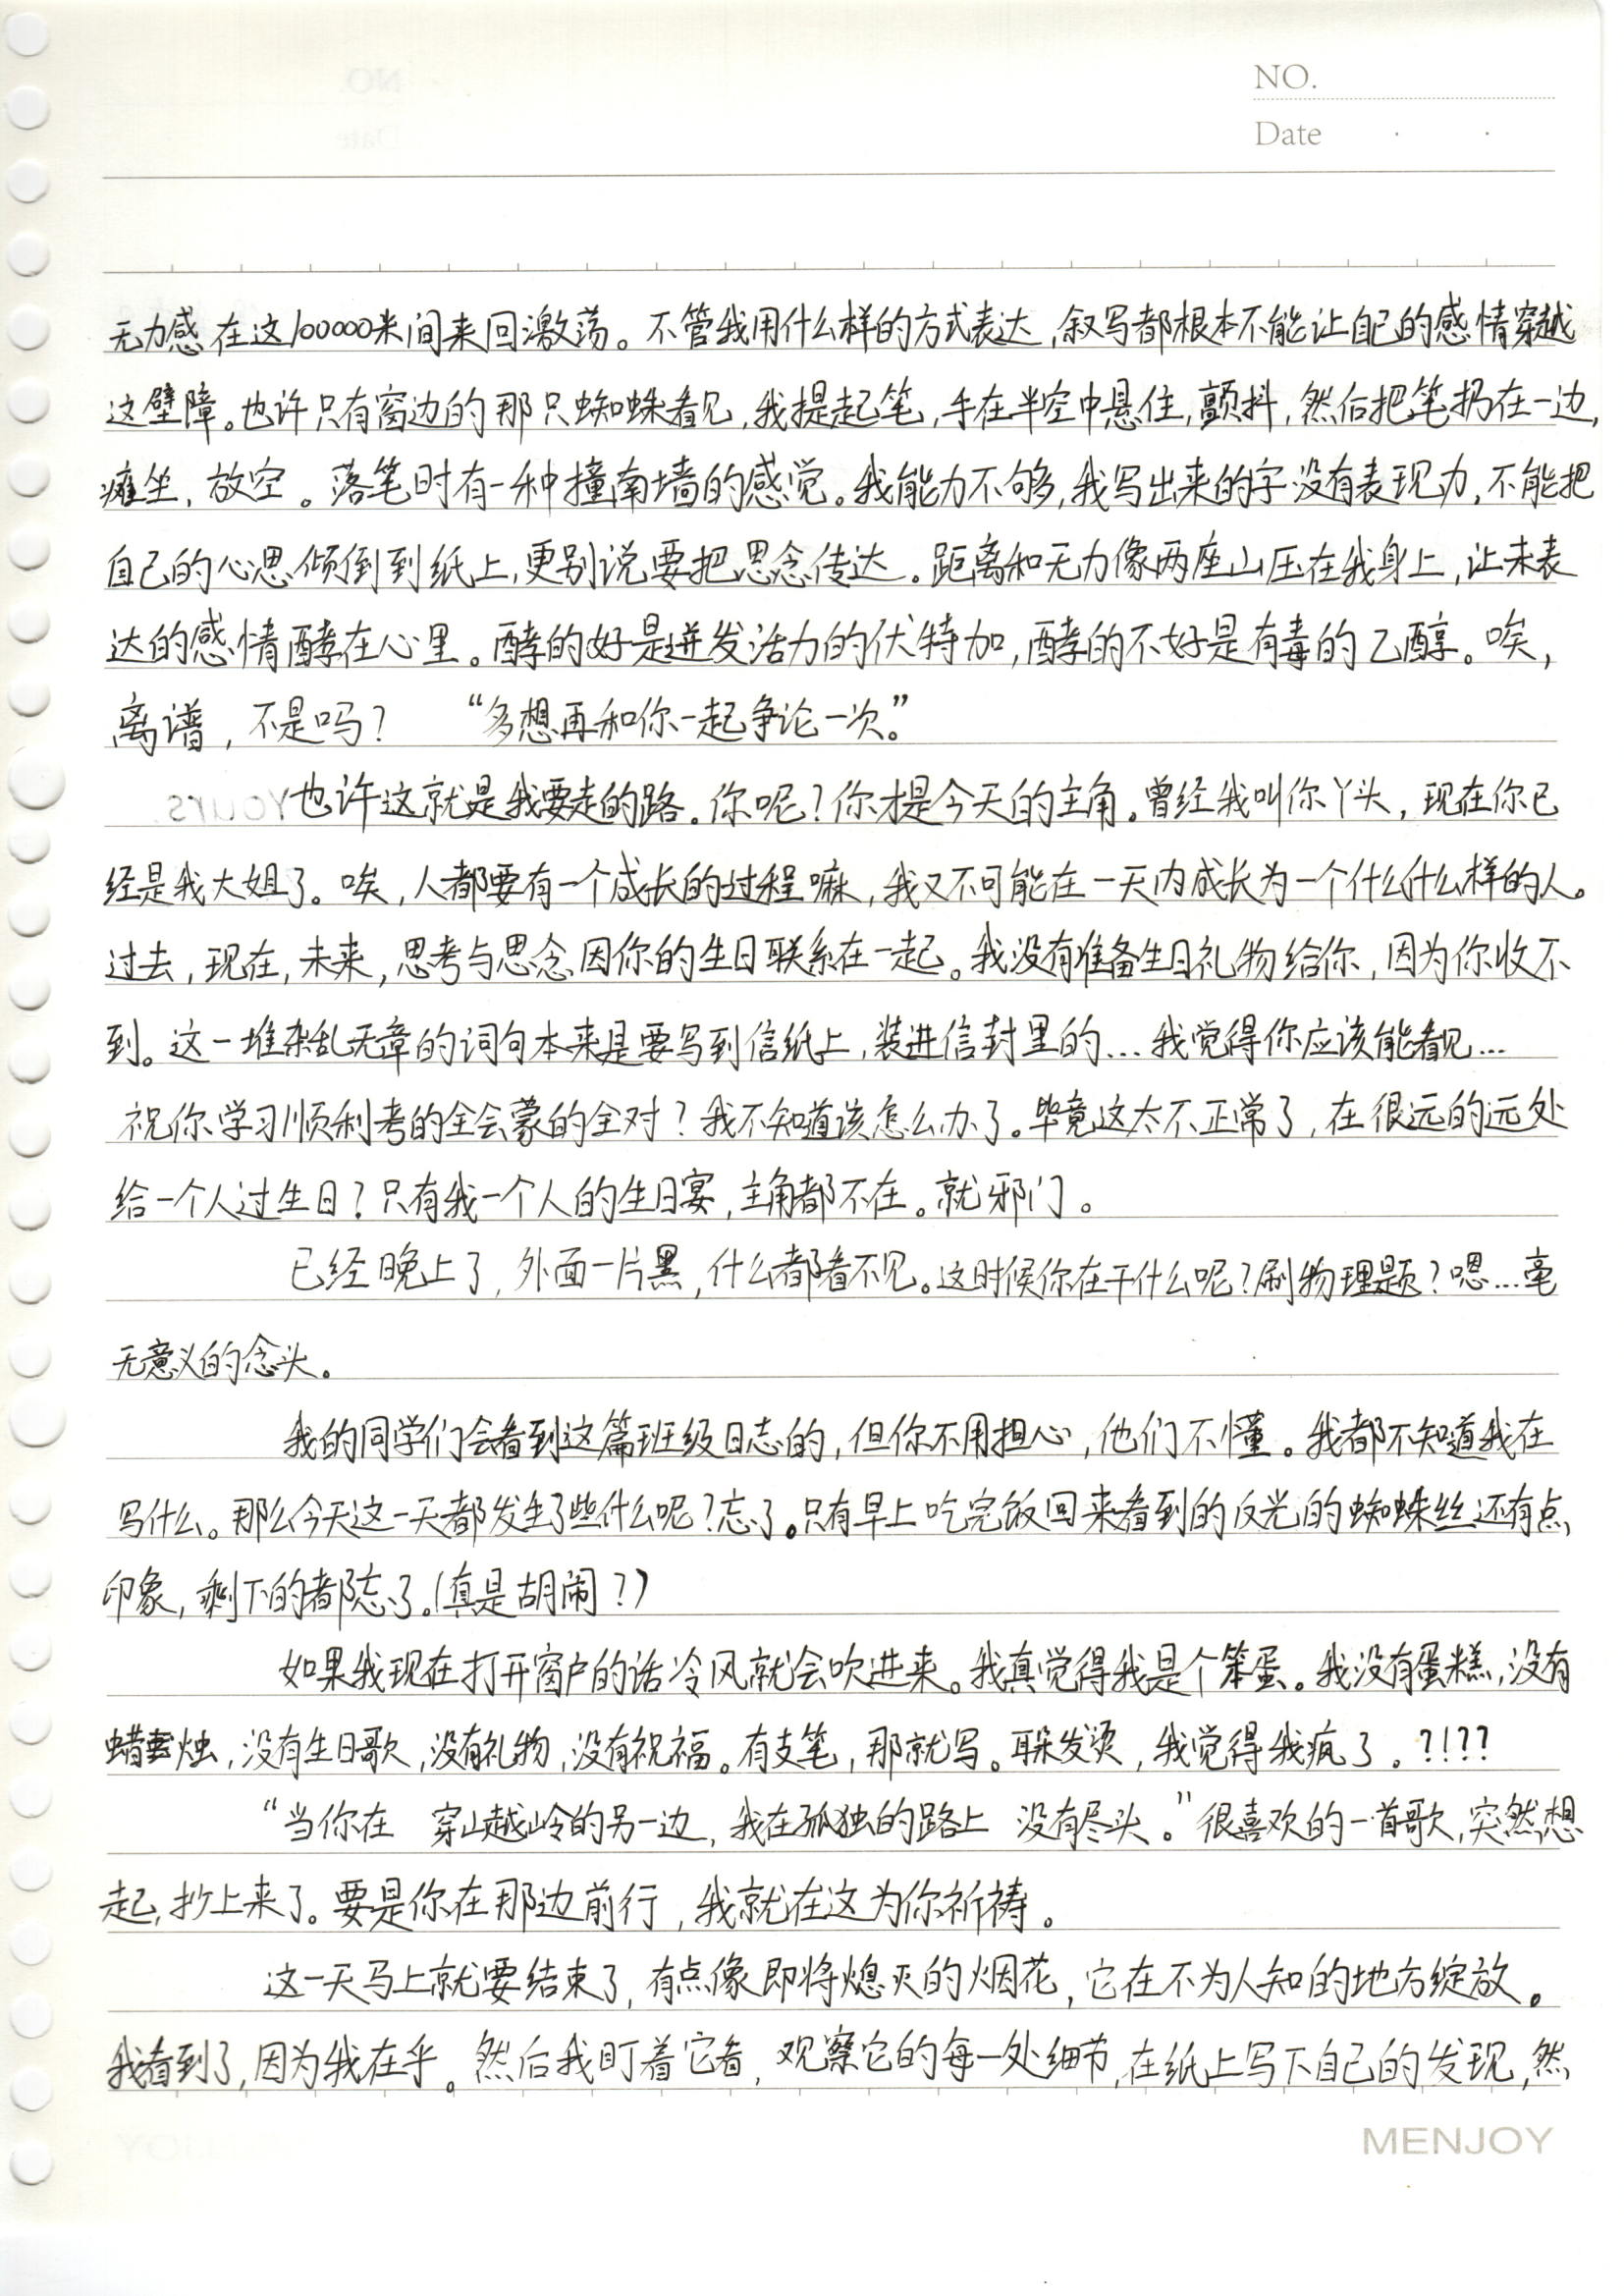 NO.
Date
无力感在这100000米间来回激荡。不管我用什么样的方式表达,叙写都根本不能让自己的感情穿越
这壁障。也许只有窗边的那只蜘蛛看见,我提起笔,手在半空中悬住,颤抖,然后把笔扔在一边,
瘫坐,放空。落笔时有一种撞南墙的感觉。我能力不够,我写出来的字没有表现力,不能把
自己的心思倾倒到纸上,更别说要把思念传达。距离和无力像两座山压在我身上,让未表
达的感情酵在心里。酵的好是迸发活力的伏特加,酵的不好是有毒的乙醇。唉,
离谱,不是吗? “多想再和你一起争论一次。”
也许这就是我要走的路。你呢?你才是今天的主角。曾经我叫你丫头,现在你已
经是我大姐了。唉,人都要有一个成长的过程嘛,我又不可能在一天内成长为一个什么什么样的人。
过去,现在,未来,思考与思念因你的生日联系在一起。我没有准备生日礼物给你,因为你收不
到。这一堆杂乱无章的词句本来是要写到信纸上,装进信封里的...我觉得你应该能看见...
祝你学习顺利考的全会蒙的全对?我不知道该怎么办了。毕竟这太不正常了,在很远的远处
给一个人过生日?只有我一个人的生日宴,主角都不在。就邪门。
已经晚上了,外面一片黑,什么都看不见。这时候你在干什么呢?刷物理题?嗯...毫
无意义的念头。
我的同学们会看到这篇班级日志的,但你不用担心,他们不懂。我都不知道我在
写什么。那么今天这一天都发生了些什么呢?忘了。只有早上吃完饭回来看到的反光的蜘蛛丝还有点
印象,剩下的都忘了。(真是胡闹?)
如果我现在打开窗户的话冷风就会吹进来。我真觉得我是个笨蛋。我没有蛋糕,没有
蜡烛,没有生日歌,没有礼物,没有祝福。有支笔,那就写。耳朵发烫,我觉得我疯了。?!??
“当你在 穿山越岭的另一边,我在孤独的路上 没有尽头。”很喜欢的一首歌,突然想
起,抄上来了。要是你在那边前行,我就在这为你祈祷。
这一天马上就要结束了,有点像即将熄灭的烟花,它在不为人知的地方绽放。
我看到了,因为我在乎。然后我盯着它看,观察它的每一处细节,在纸上写下自己的发现,然
MENJOY